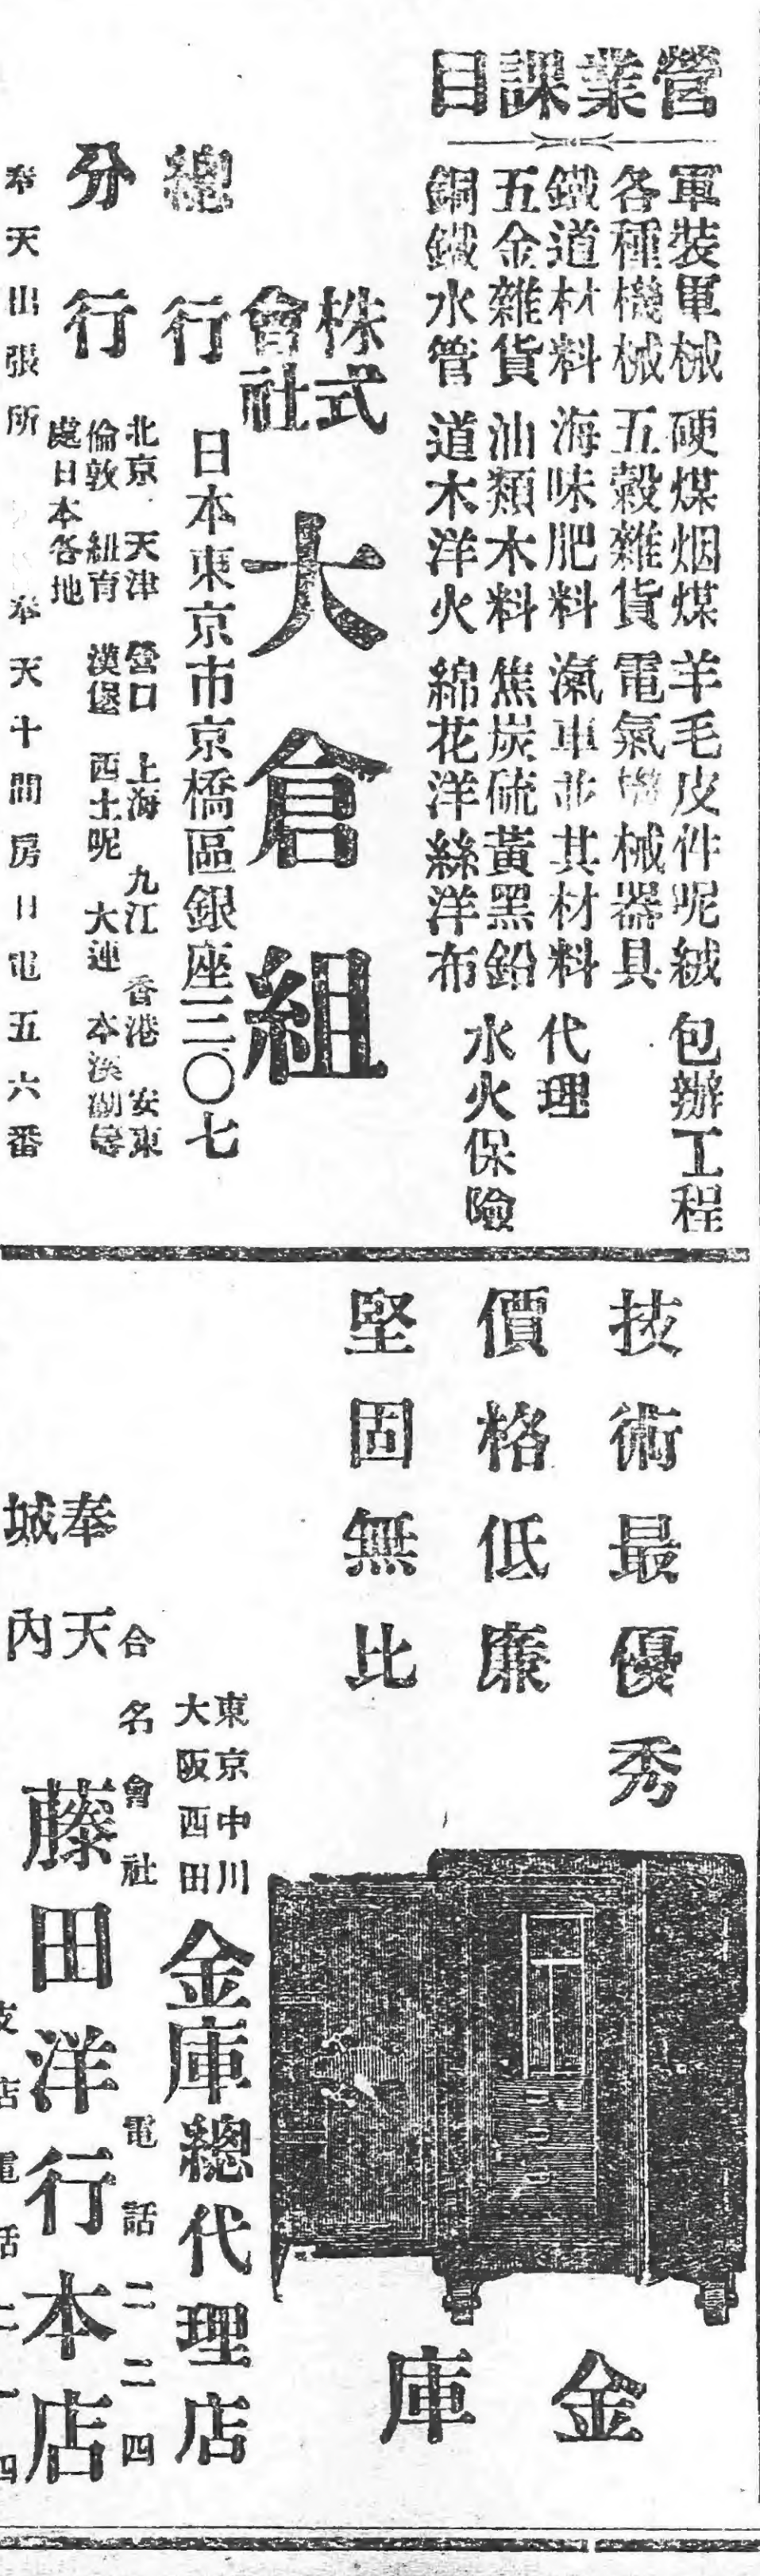 營業課目
軍裝軍械 硬煤烟煤 羊毛皮件呢絨 包辦工程
各種機械 五穀雜貨 電氣機械器具
鐵道材料 海味肥料 瀛車並其材料 代理
五金雜貨 油類木料 焦炭硫黃黑鉛 水火保險
銅鐵水管 道木洋火 綿花洋絲洋布
株式會社 大倉組
總行 日本東京市京橋區銀座三〇七
分行 北京 天津 營口 上海 九江 香港 安東
倫敦 紐育 漢堡 西土呢 大連 本溪湖等
處日本各地
奉天出張所 奉天十間房日電五六番
技術最優秀
價格低廉
堅固無比
金庫
東京中川
大阪西田
金庫總代理店
合名會社 電話二二四
奉天
城內
藤田洋行本店
支店電話二一四